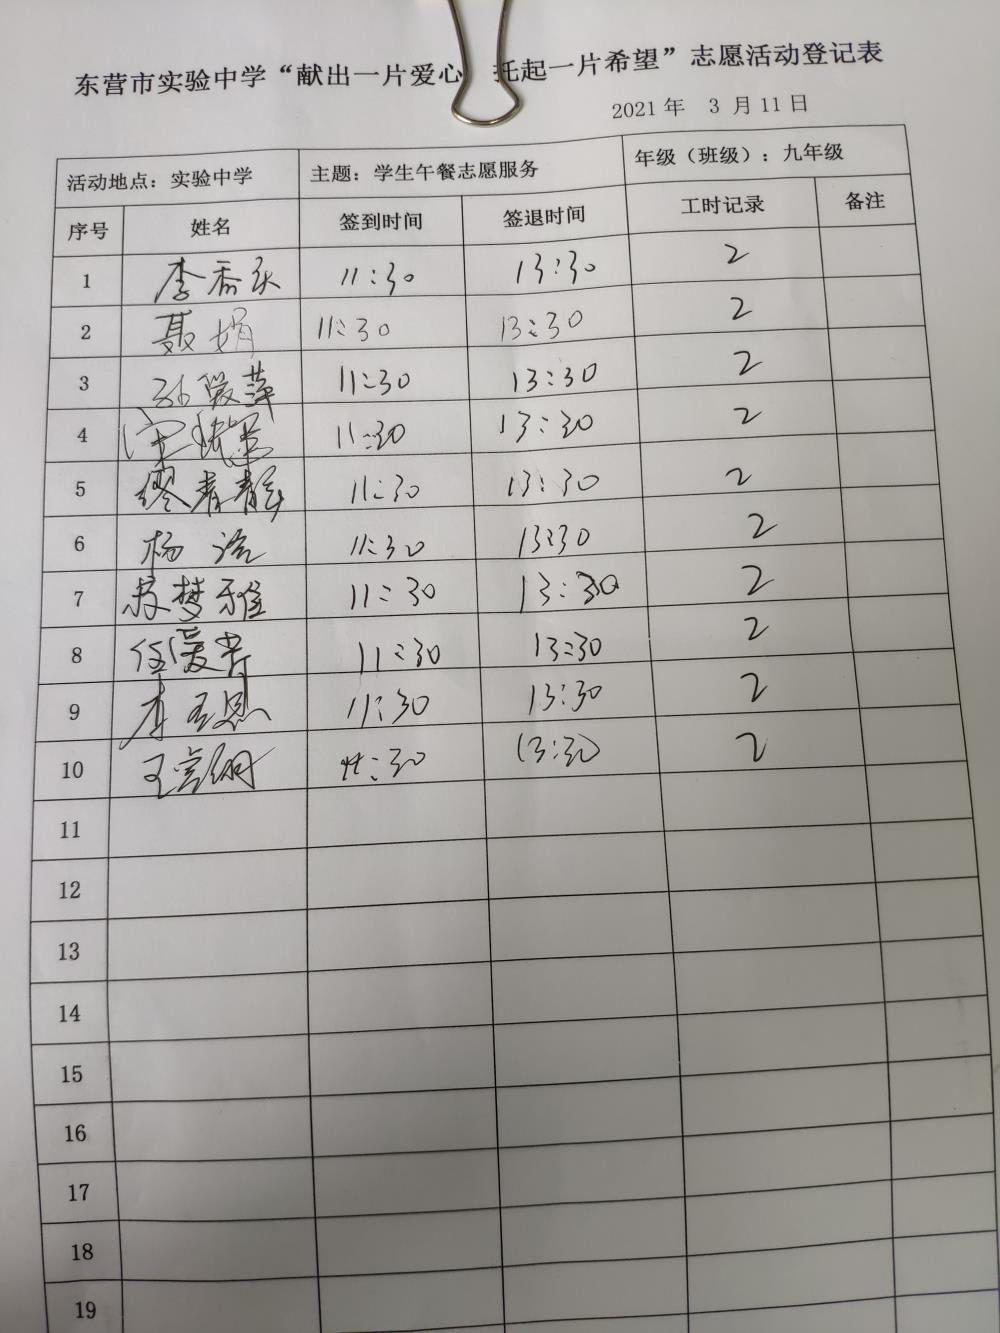 东营市实验中学“献出一片爱心 托起一片希望”志愿活动登记表
2021 年 3 月 11 日
活动地点：实验中学 主题：学生午餐志愿服务 年级（班级）：九年级
序号 姓名 签到时间 签退时间 工时记录 备注
1 李 11:30 13:30 2
2 聂娟 11:30 13:30 2
3 孙 萍 11:30 13:30 2
4 宋 11:30 13:30 2
5 缪春静 11:30 13:30 2
6 杨洁 11:30 13:30 2
7 梦雅 11:30 13:30 2
8 任爱芳 11:30 13:30 2
9 李 恩 11:30 13:30 2
10 王 11:30 13:30 2
11
12
13
14
15
16
17
18
19